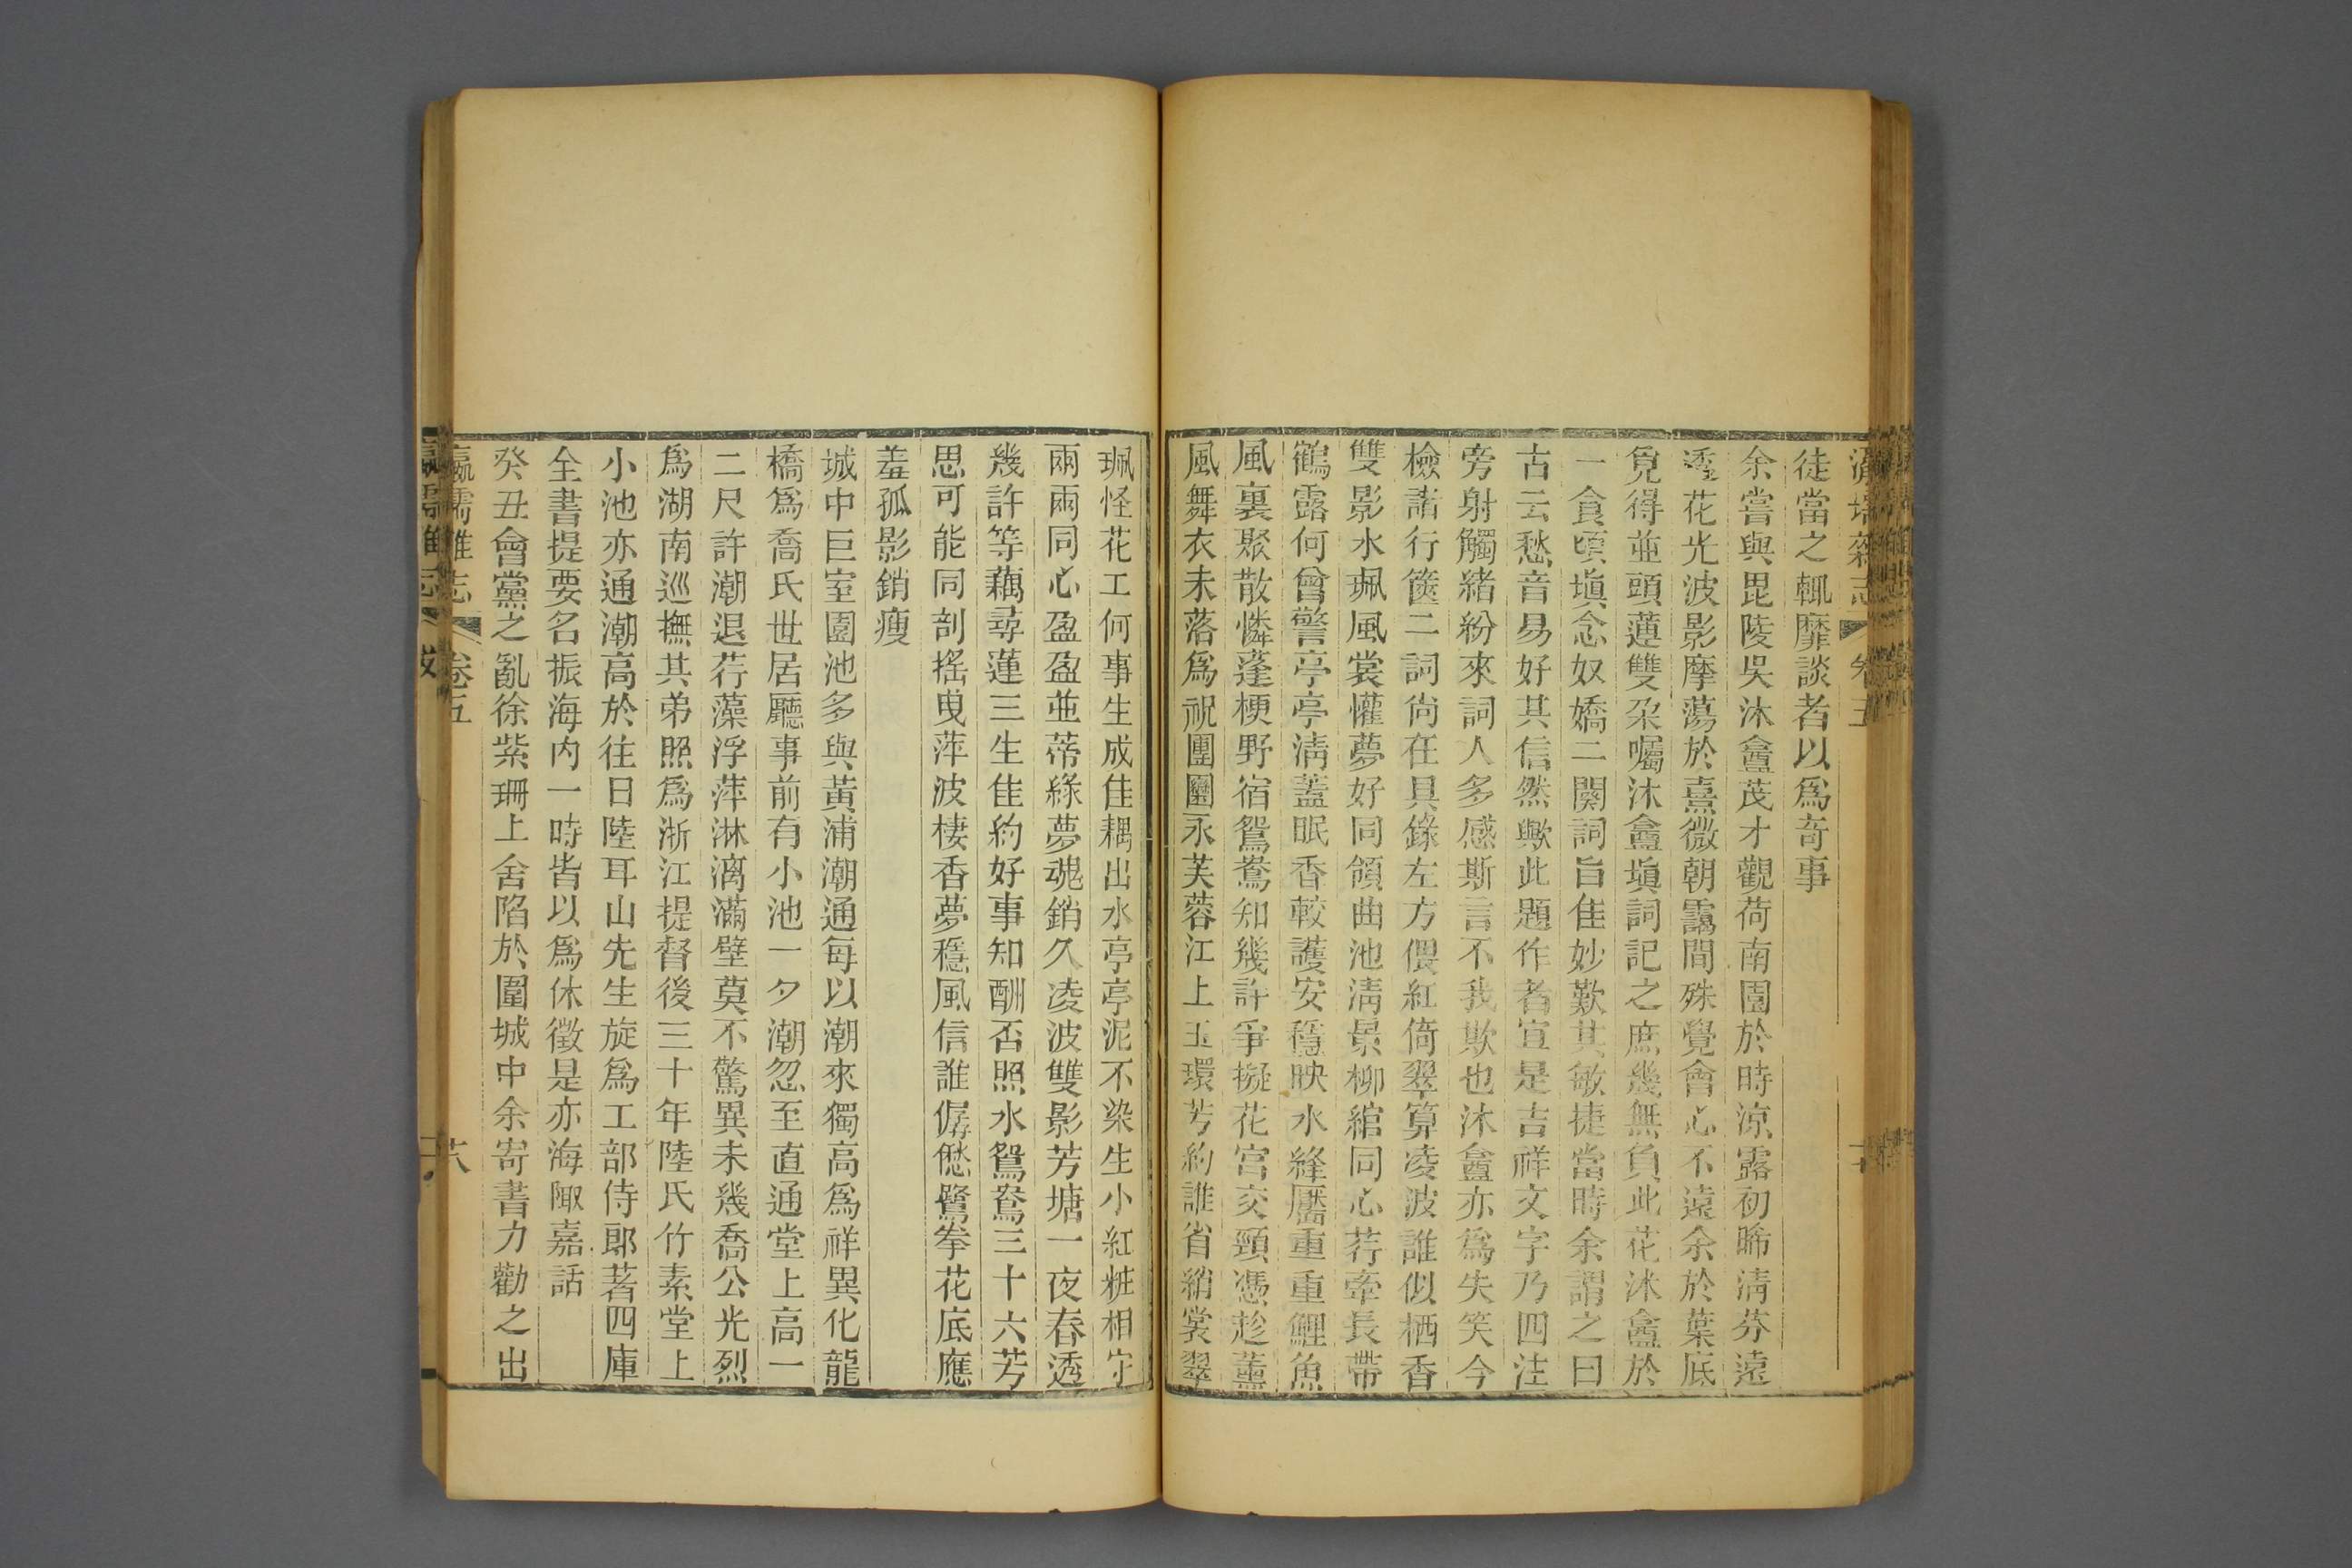 徒當之輒靡談者以爲奇事
余嘗與毘陵吳沐盦茂才觀荷南園於時涼露初晞淸芬遠
透花光波影摩蕩於熹微朝靄間殊覺會心不遠余於葉底
覓得並頭蓮雙朶囑沐盦塡詞記之庶幾無負此花沐盦於
一食頃塡念奴嬌二闋詞旨佳妙歎其敏捷當時余謂之曰
古云愁音易好其信然歟此題作者宜是吉祥文字乃四注
旁射觸緒紛來詞人多感斯言不我欺也沐盦亦爲失笑今
檢諸行篋二詞尙在具錄左方偎紅倚翠算凌波誰似栖香
雙影水珮風裳懽夢好同領曲池淸景柳綰同心荇牽長帶
鶴露何曾警亭亭淸蓋眠香較護安穩映水絳靨重重鯉魚
風裏聚散憐蓬梗野宿鴛鴦知幾許爭擬花宮交頸憑趁薰
風舞衣未落爲祝團圞永芙蓉江上玉環芳約誰省綃裳翠
珮怪花工何事生成佳耦出水亭亭泥不染生小紅粧相守
兩兩同心盈盈並蒂綠夢魂銷久凌波雙影芳塘一夜春透
幾許等藕尋蓮三生佳約好事知酬否照水鴛鴦三十六芳
思可能同剖搖曳萍波棲香夢穩風信誰僝僽鷺拳花底應
羞孤影銷瘦
城中巨室園池多與黃浦潮通每以潮來獨高爲祥異化龍
橋爲喬氏世居廳事前有小池一夕潮忽至直通堂上高一
二尺許潮退荇藻浮萍淋漓滿壁莫不驚異未幾喬公光烈
爲湖南巡撫其弟照爲浙江提督後三十年陸氏竹素堂上
小池亦通潮高於往日陸耳山先生旋爲工部侍郞著四庫
全書提要名振海内一時皆以爲休徵是亦海陬嘉話
癸丑會黨之亂徐紫珊上舍陷於圍城中余寄書力勸之出
瀛壖雜志 卷五